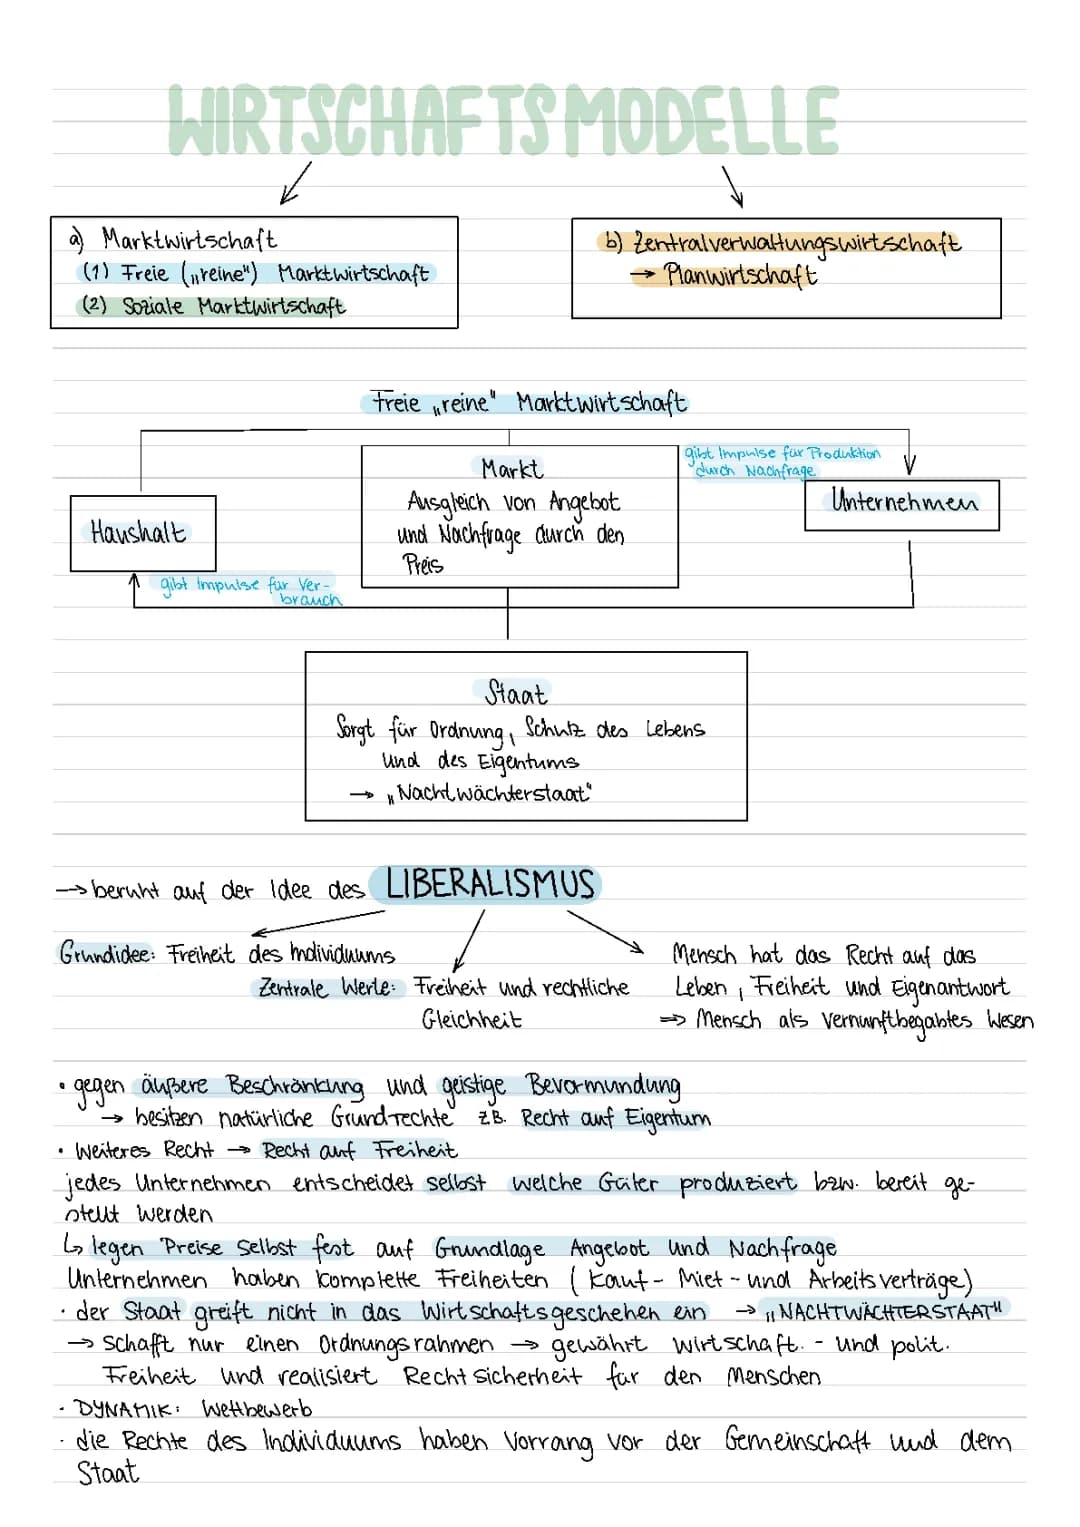 WIRTSCHAFTSMODELLE
a) Marktwirtschaft
(1) Freie („reine") Marktwirtschaft
(2) Soziale Marktwirtschaft
b) Zentralverwaltungswirtschaft
→ Planwirtschaft
Freie „reine" Marktwirtschaft
gibt Impulse für Produktion
durch Nachfrage
Markt
Ausgleich von Angebot
und Nachfrage durch den
Preis
Unternehmen
Haushalt
gibt Impulse für Ver-
brauch
Staat
Sorgt für Ordnung, Schutz des Lebens
und des Eigentums
→ „Nachtwächterstaat"
→ beruht auf der Idee des LIBERALISMUS
Grundidee: Freiheit des Individuums
Zentrale Werte: Freiheit und rechtliche
Gleichheit
Mensch hat das Recht auf das
Leben, Freiheit und Eigenantwort
⇒ Mensch als vernunftbegabtes Wesen
• gegen äußere Beschränkung und geistige Bevormundung
→ besitzen natürliche Grundrechte z.B. Recht auf Eigentum
• Weiteres Recht → Recht auf Freiheit
jedes Unternehmen entscheidet selbst welche Güter produziert bzw. bereit ge-
stellt werden
↳ legen Preise selbst fest auf Grundlage Angebot und Nachfrage
Unternehmen haben komplette Freiheiten (Kauf- Miet - und Arbeitsverträge)
· der Staat greift nicht in das Wirtschaftsgeschehen ein → „NACHTWÄCHTERSTAAT"
→ schafft nur einen Ordnungsrahmen → gewährt wirtschaft. - und polit.
Freiheit und realisiert Rechtsicherheit für den Menschen
· DYNAMIK: Wettbewerb
· die Rechte des Individuums haben Vorrang vor der Gemeinschaft und dem
Staat